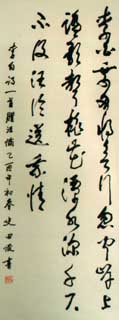 李白乘舟将欲行忽闻岸上
踏歌声桃花潭水深千尺
不及汪伦送我情
李白诗一首赠汪伦 乙酉年初春 史 书